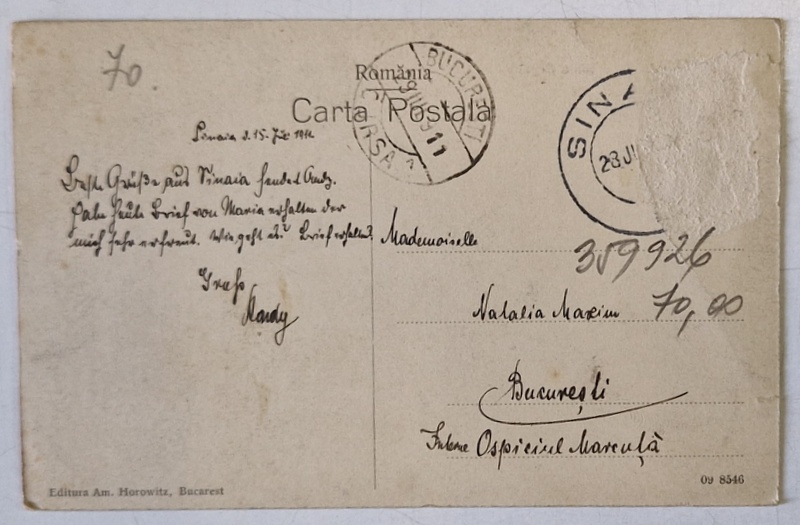 70.
România
Carta Postala
BUCUREȘTI
CURSA
11
SINA
28 JU
Sinaia d. 15. Jül 1911
Beste Grüße aus Sinaia sendet Andy.
Habe heute Brief von Maria erhalten der
mich sehr erfreut. Wie geht es? Brief erhalten?
Gruß
Mademoiselle
359926
Natalia Maxim
70,00
București
Interne Ospiciul Marcuță
Editura Am. Horowitz, Bucarest
09 8546